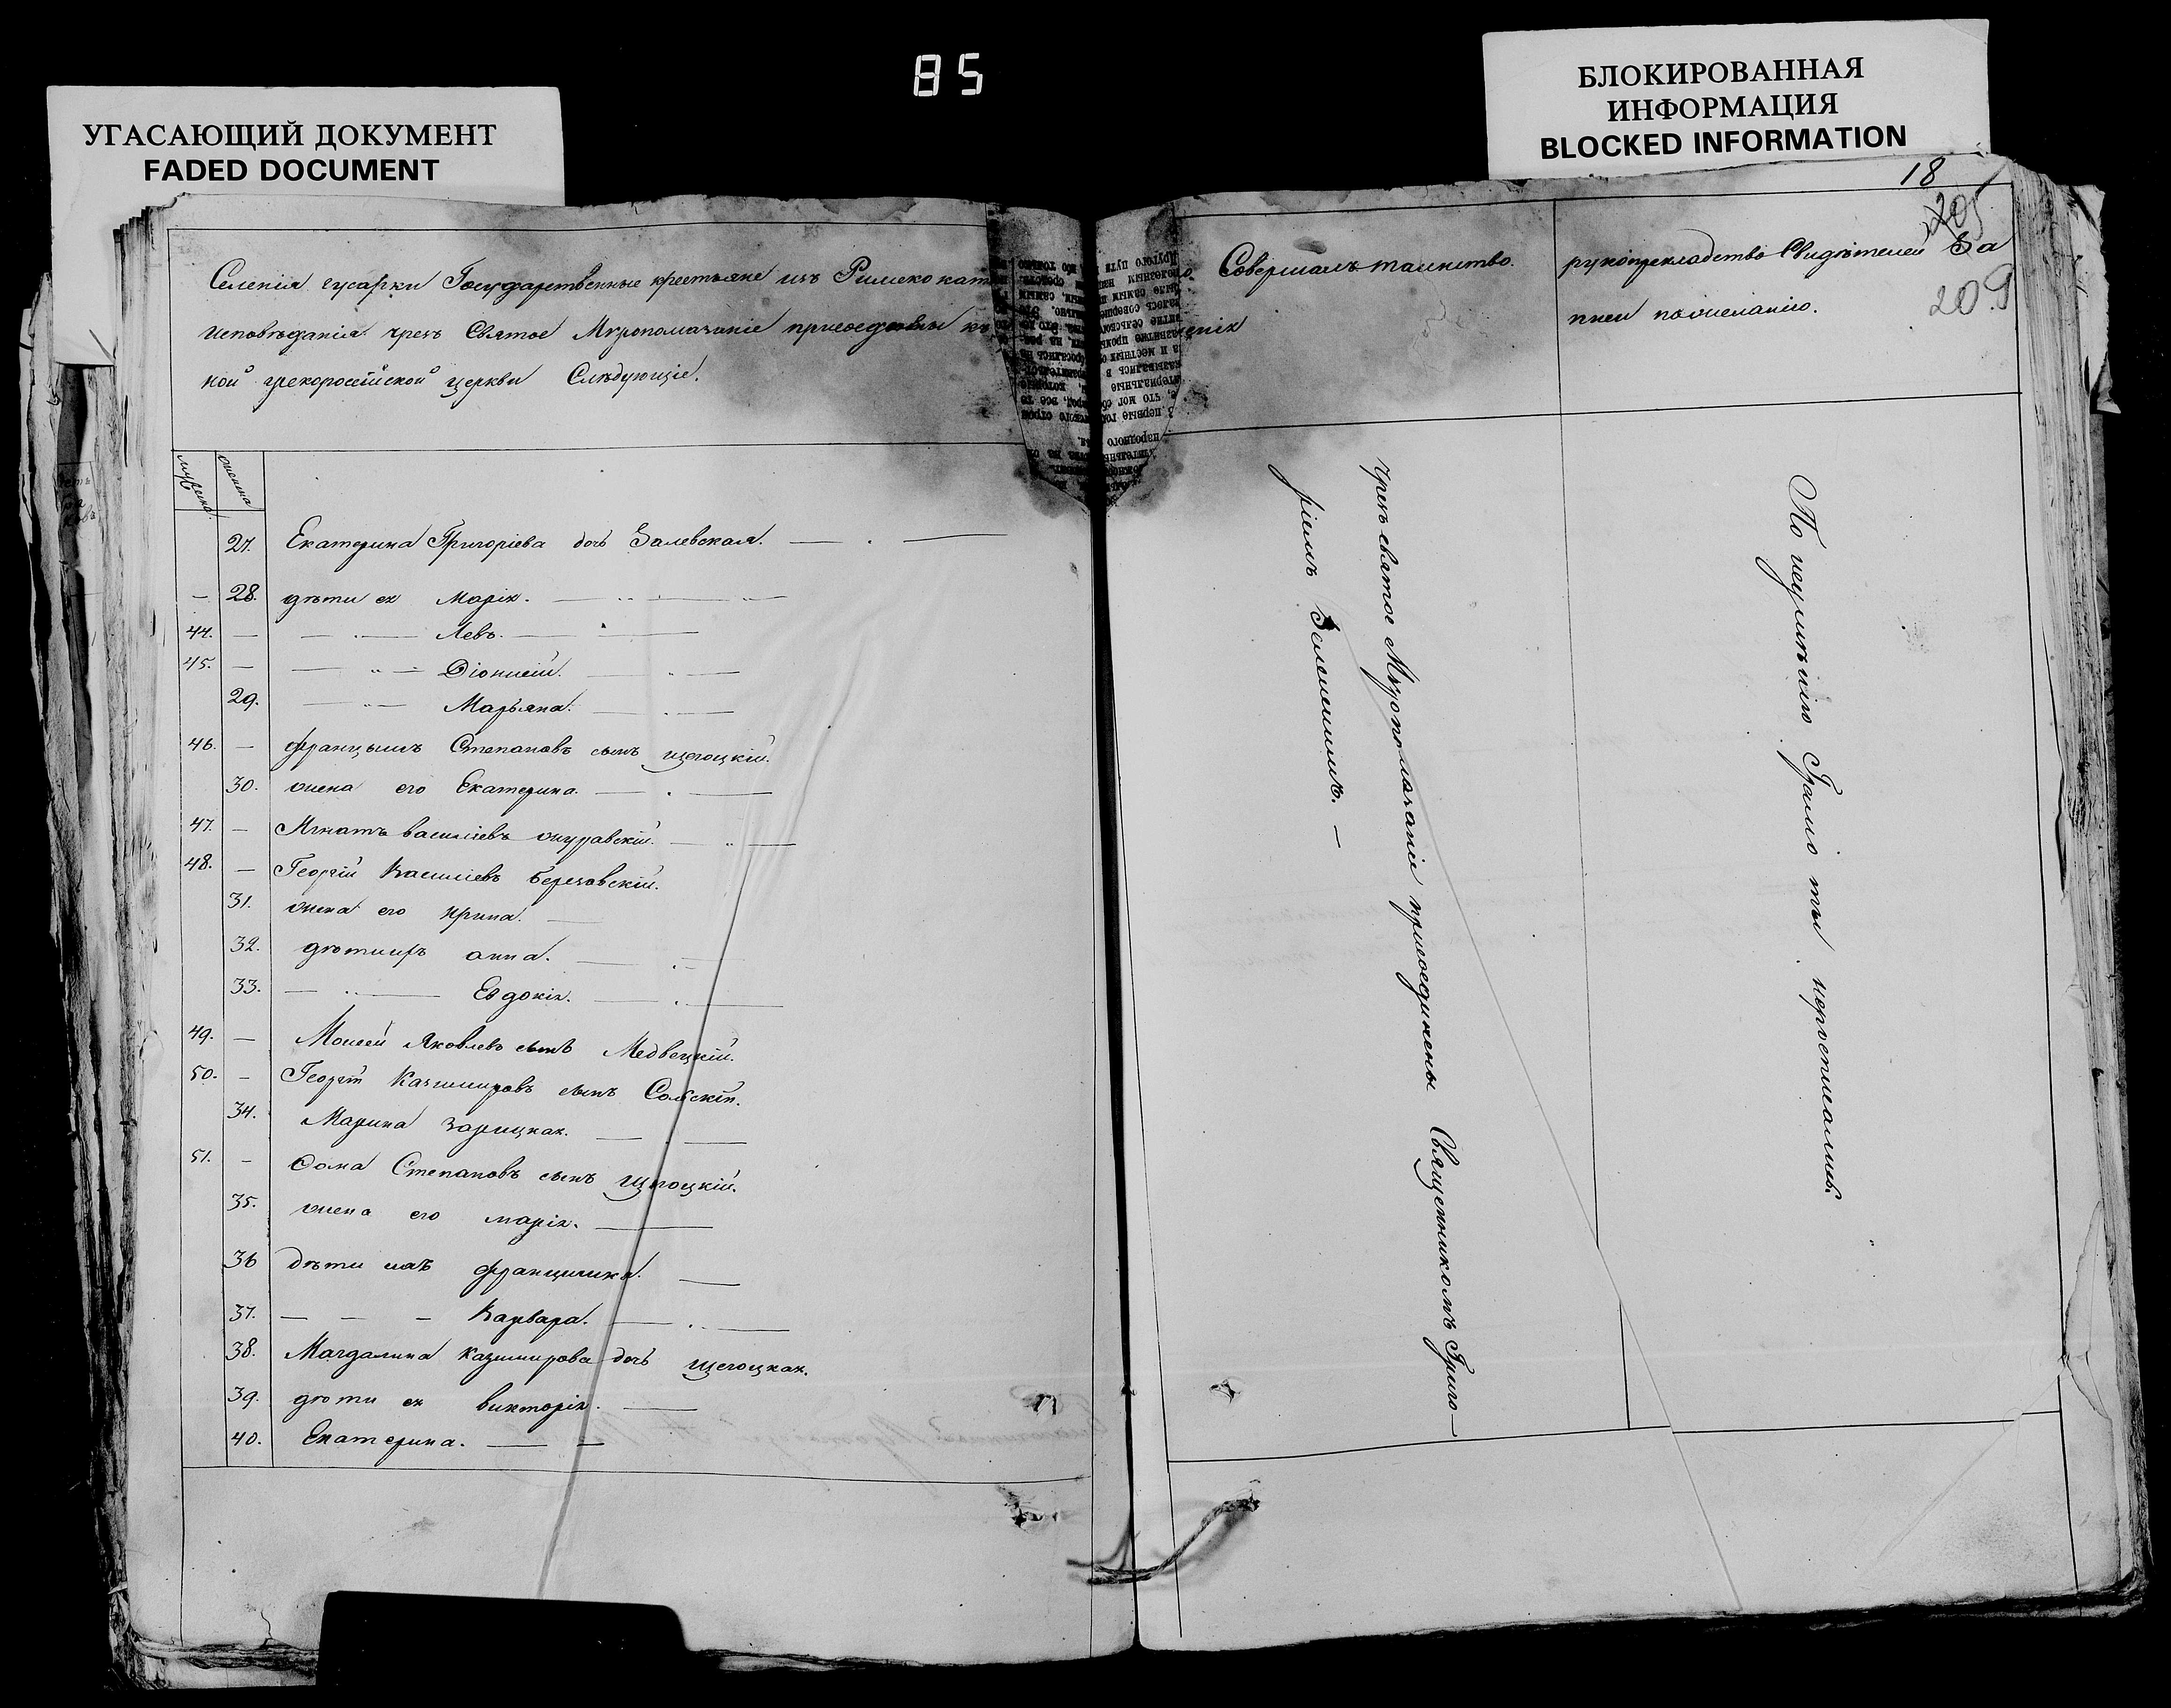 85
УГАСАЮЩИЙ ДОКУМЕНТ
FADED DOCUMENT
БЛОКИРОВАННАЯ
ИНФОРМАЦИЯ
BLOCKED INFORMATION
18
205
209
Селенія гусарки Государственные крестьяне изъ Римско кат
исповѣданія чрезъ Святое Мѵропомазаніе присоединены къ
кой грекороссійской церкви Слѣдующіе.
мужеска. женска
27. Екатерина Григоріева дочь Залевская.
— 28. дѣти ея Марія.
44. — Левъ.
45. — Діонисій.
29. Марьяна.
46. — францышъ Степановъ сынъ щегоцкій.
30. жена его Екатерина.
47. — Игнатъ василіевъ журавскій.
48. — Георгій Василіевъ березовскій.
31. жена его ирина.
32. дѣти ихъ анна.
33. Евдокія.
49. — Моисей Яковлевъ сынъ Медвецкій.
50. — Георгій Казимировъ сынъ Сольскій.
34. Марина зарицкая.
51. — Ѳома Степановъ сынъ щегоцкій.
35. жена его марія.
36 дѣти ихъ францишка.
37. — — — Варвара.
38. Магдалина казимирова дочь щегоцкая.
39. дѣти ея викторія.
40. Екатерина.
Совершалъ таинство.
чрезъ святое Мѵропомазаніе присоединены Священникомъ Григо—
ріемъ Зелениимъ. —
рукоприкладство Свидѣтелей За
писи по желанію.
По неумѣнію Грамо ты неросписались.